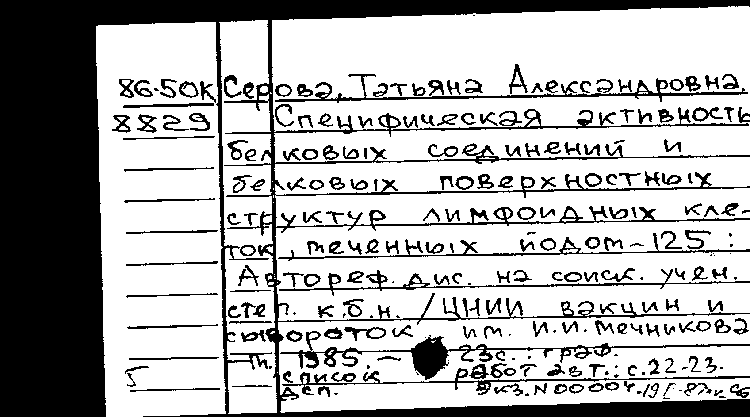 86-50К Серова, Татьяна Александровна.
8829 Специфическая активность
белковых соединений и
белковых поверхностных
структур лимфоидных кле-
ток, меченных йодом-125 :
Автореф. дис. на соиск. учен.
степ. к.б.н. / ЦНИИ вакцин и
сывороток им. И.И. Мечникова
— М., 1985. — 23с. : граф.
5 Список работ авт.: с.22-23.
Дсп. Экз. N 00004.